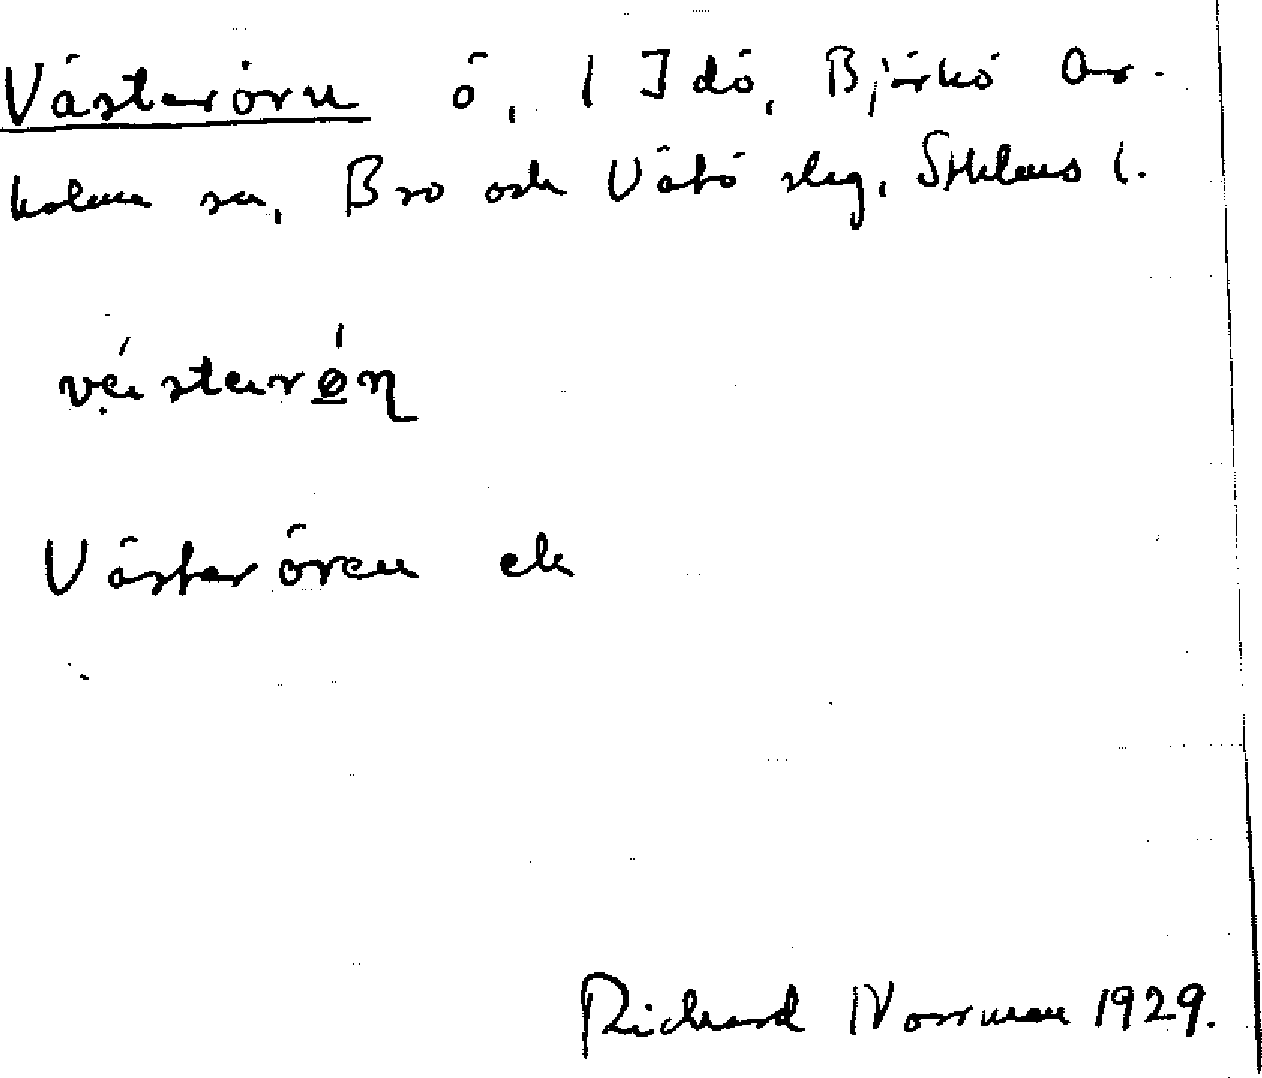 Västerörn ö, l Idö, Björkö Ar-
holma sn, Bro och Vätö slg, Sthlms l.
västärǿ̱ɳ
Västerören ek
Richard Norrman 1929.